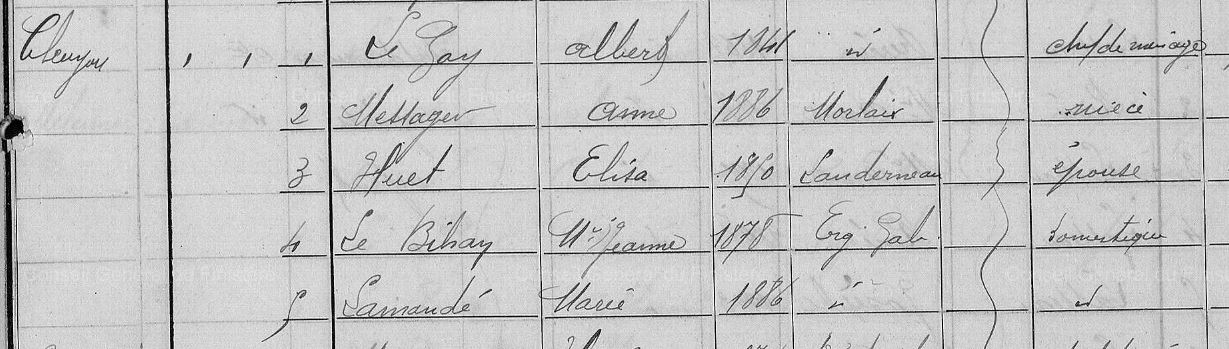 Cleuyou , , 1 Le Gay Albert 1841 id chef de ménage
2 Messager Anne 1886 Morlaix nièce
3 Huet Elisa 1850 Landerneau épouse
4 Le Bihay Mie Jeanne 1878 Erg. Gab. domestique
5 Lamandé Marie 1886 id id